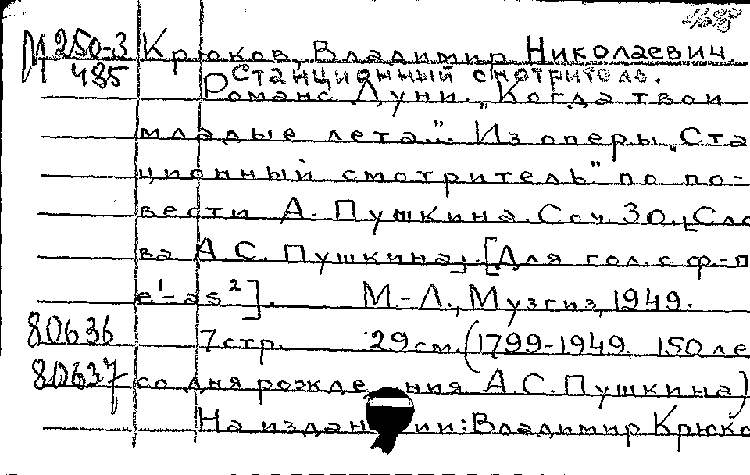 М 250-3 Крюков, Владимир Николаевич.
485 Станционный смотритель.
Романс Дуни. „Когда твои
младые лета.". Из оперы „Ста
ционный смотритель" по по-
вести А. Пушкина. Соч. 30. [Сло
ва А.С. Пушкина]. [Для гол. с ф.-п
e¹-as²]. М-Л., Музгиз, 1949.
80636 7 стр. 29 см. (1799-1949. 150 ле
80637 со дня рождения А.С. Пушкина)
На издании: Владимир Крюко